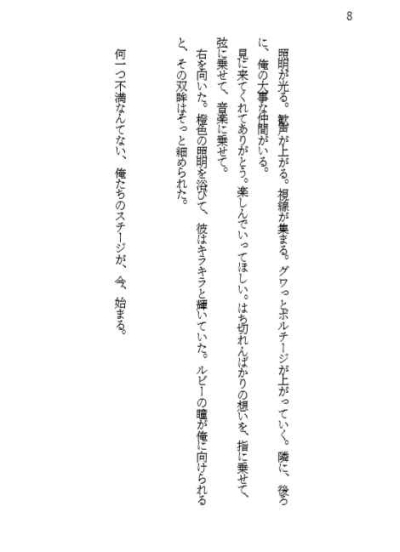 8
照明が光る。歓声が上がる。視線が集まる。グワっとボルテージが上がっていく。隣に、後ろ
に、俺の大事な仲間がいる。
見に来てくれてありがとう。楽しんでいってほしい。はち切れんばかりの想いを、指に乗せて、
弦に乗せて、音楽に乗せて。
右を向いた。橙色の照明を浴びて、彼はキラキラと輝いていた。ルビーの瞳が俺に向けられる
と、その双眸はそっと細められた。
何一つ不満なんてない、俺たちのステージが、今、始まる。